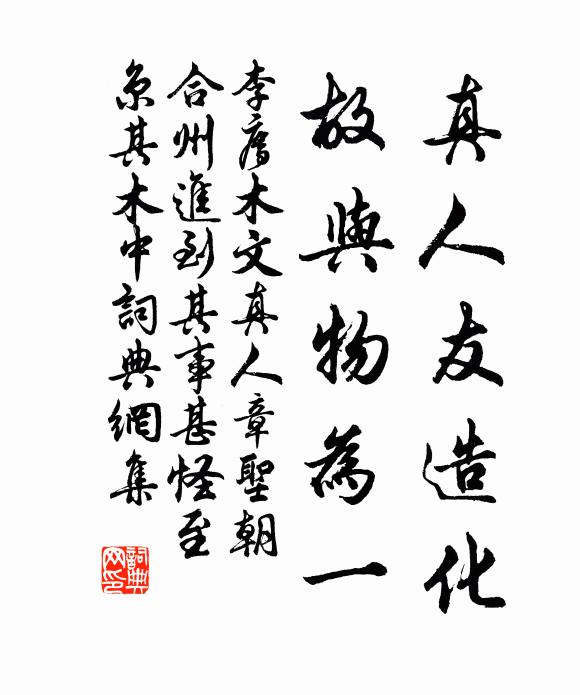 真人友造化
故與物為一
李廌木文真人章聖朝
合州進到其事甚怪至
京其木中詞典網集
詞典
网印